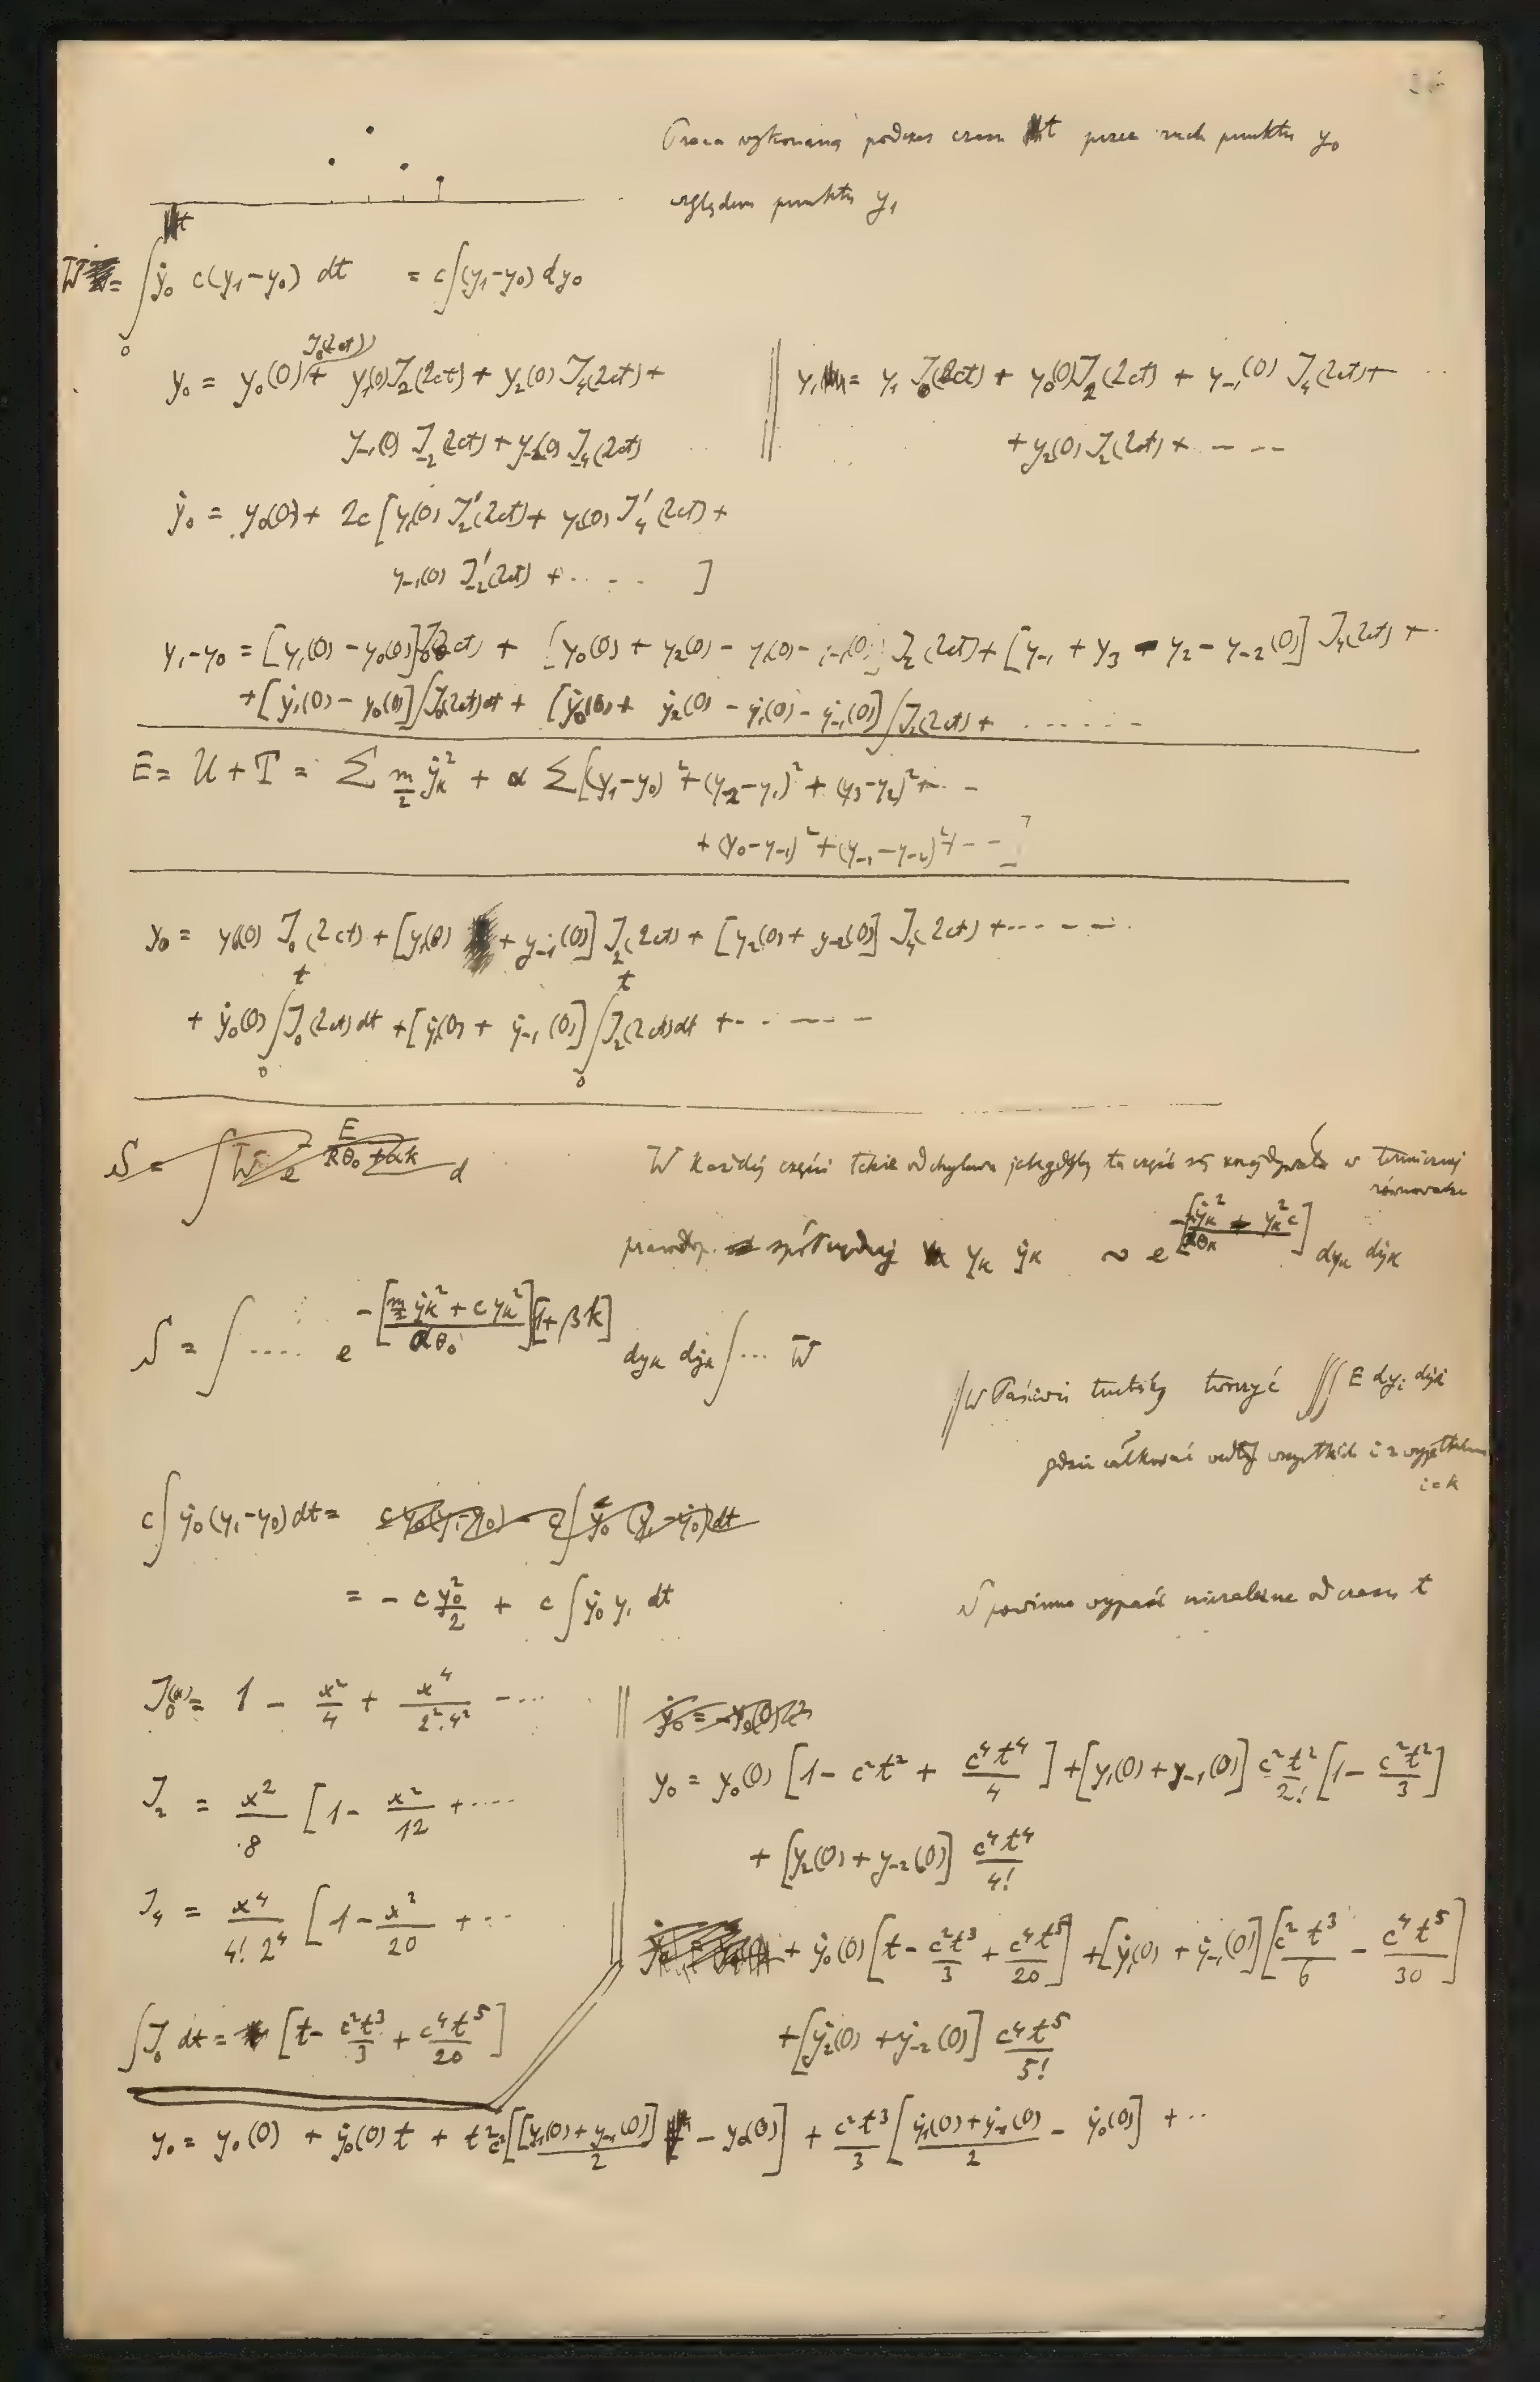 Praca wykonana podczas czasu t przez ruch punktu y₀
względem punktu y₁
W = ∫₀ᵗ ẏ₀ c(y₁−y₀) dt = c∫(y₁−y₀) dy₀
y₀ = y₀(0) J₀(2ct) + y₁(0) J₂(2ct) + y₂(0) J₄(2ct) +
y₋₁(0) J₋₂(2ct) + y₋₂(0) J₋₄(2ct)
‖ y₁ = y₁ J₀(2ct) + y₀(0) J₂(2ct) + y₋₁(0) J₄(2ct) + ..
+ y₂(0) J₂(2ct) + - - - -
ẏ₀ = y₀(0) + 2c [y₁(0) J₂′(2ct) + y₂(0) J₄′(2ct) +
y₋₁(0) J₋₂′(2ct) + . . . . ]
y₁−y₀ = [y₁(0) − y₀(0)] J₀(2ct) + [y₀(0) + y₂(0) − y₁(0) − y₋₁(0)] J₂(2ct) + [y₋₁ + y₃ − y₂ − y₋₂(0)] J₄(2ct) + .
+ [ẏ₁(0) − y₀(0)] ∫J₀(2ct)dt + [ẏ₀(0) + ẏ₂(0) − ẏ₁(0) − ẏ₋₁(0)] ∫J₂(2ct) + . . . . . .
E = U + T = Σ m/2 ẏₖ² + α Σ[(y₁−y₀)² + (y₂−y₁)² + (y₃−y₂)² + . -
+ (y₀−y₋₁)² + (y₋₁−y₋₂)² + - - ]
y₀ = y₀(0) J₀(2ct) + [y₁(0) + y₋₁(0)] J₂(2ct) + [y₂(0) + y₋₂(0)] J₄(2ct) + . . . . - - .
+ ẏ₀(0) ∫₀ᵗ J₀(2ct) dt + [ẏ₁(0) + ẏ₋₁(0)] ∫₀ᵗ J₂(2ct) dt + - . . - - -
S = ∫ W e^(−E/(Rθ₀ + αk)) d
W każdej części takie odchylenia jak gdyby ta część się znajdywała w termicznej
równowadze
prawdop. yₖ ẏₖ ~ e^(−[ẏₖ² + yₖ² c]/αθₖ) dyₖ dẏₖ
S = ∫ .... e^(−[(m/2 ẏₖ² + c yₖ²)/αθ₀][1 + βk]) dyₖ dẏₖ ∫ ... W
‖ Właściwie trzebaby tworzyć ∭ E dyᵢ dẏᵢ
gdzie całkować według wszystkich i z wyjątkiem
i = k
c∫ẏ₀(y₁−y₀)dt = c y₀(y₁−y₀) − c∫ẏ₀(y₁−ẏ₀)dt
= − c y₀²/2 + c∫ẏ₀ y₁ dt
S powinno wypaść niezależne od czasu t
J₀(x) = 1 − x²/4 + x⁴/(2²·4²) − ....
J₂ = x²/8 [1 − x²/12 + ....
J₄ = x⁴/(4! 2⁴) [1 − x²/20 + ..
∫J₀ dt = [t − c²t³/3 + c⁴t⁵/20]
‖ ẏ₀ = −y₀(0)c²
y₀ = y₀(0) [1 − c²t² + c⁴t⁴/4] + [y₁(0) + y₋₁(0)] c²t²/2! [1 − c²t²/3]
+ [y₂(0) + y₋₂(0)] c⁴t⁴/4!
+ ẏ₀(0) [t − c²t³/3 + c⁴t⁵/20] + [ẏ₁(0) + ẏ₋₁(0)] [c²t³/6 − c⁴t⁵/30]
+ [ẏ₂(0) + ẏ₋₂(0)] c⁴t⁵/5!
y₀ = y₀(0) + ẏ₀(0) t + t²c² [[y₁(0) + y₋₁(0)]/2 − y₀(0)] + c²t³/3 [(ẏ₁(0) + ẏ₋₁(0))/2 − ẏ₀(0)] + ..